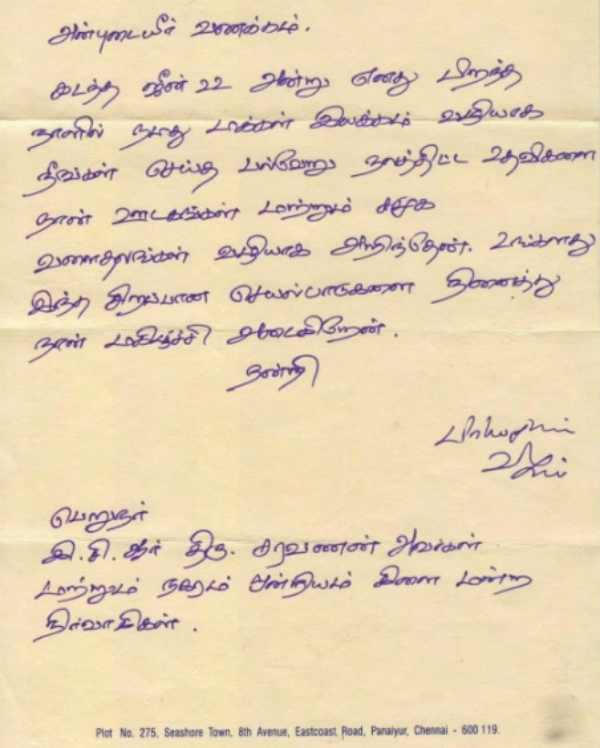 அன்புடையீர் வணக்கம்.
கடந்த ஜூன் 22 அன்று எனது பிறந்த
நாளில் நமது மக்கள் இயக்கம் வழியாக
நீங்கள் செய்த பல்வேறு நலத்திட்ட உதவிகளை
நான் ஊடகங்கள் மற்றும் சமூக
வளைதலங்கள் வழியாக அறிந்தேன். உங்களது
இந்த சிறப்பான செயல்பாடுகளை நினைத்து
நான் மகிழ்ச்சி அடைகிறேன்.
நன்றி
பிரியமுடன்
விஜய்
பெறுநர்
இ.சி.ஆர் திரு. சரவணன் அவர்கள்
மற்றும் நகரம் ஒன்றியம் கிளை மன்ற
நிர்வாகிகள்.
Plot No. 275, Seashore Town, 8th Avenue, Eastcoast Road, Panaiyur, Chennai - 600 119.